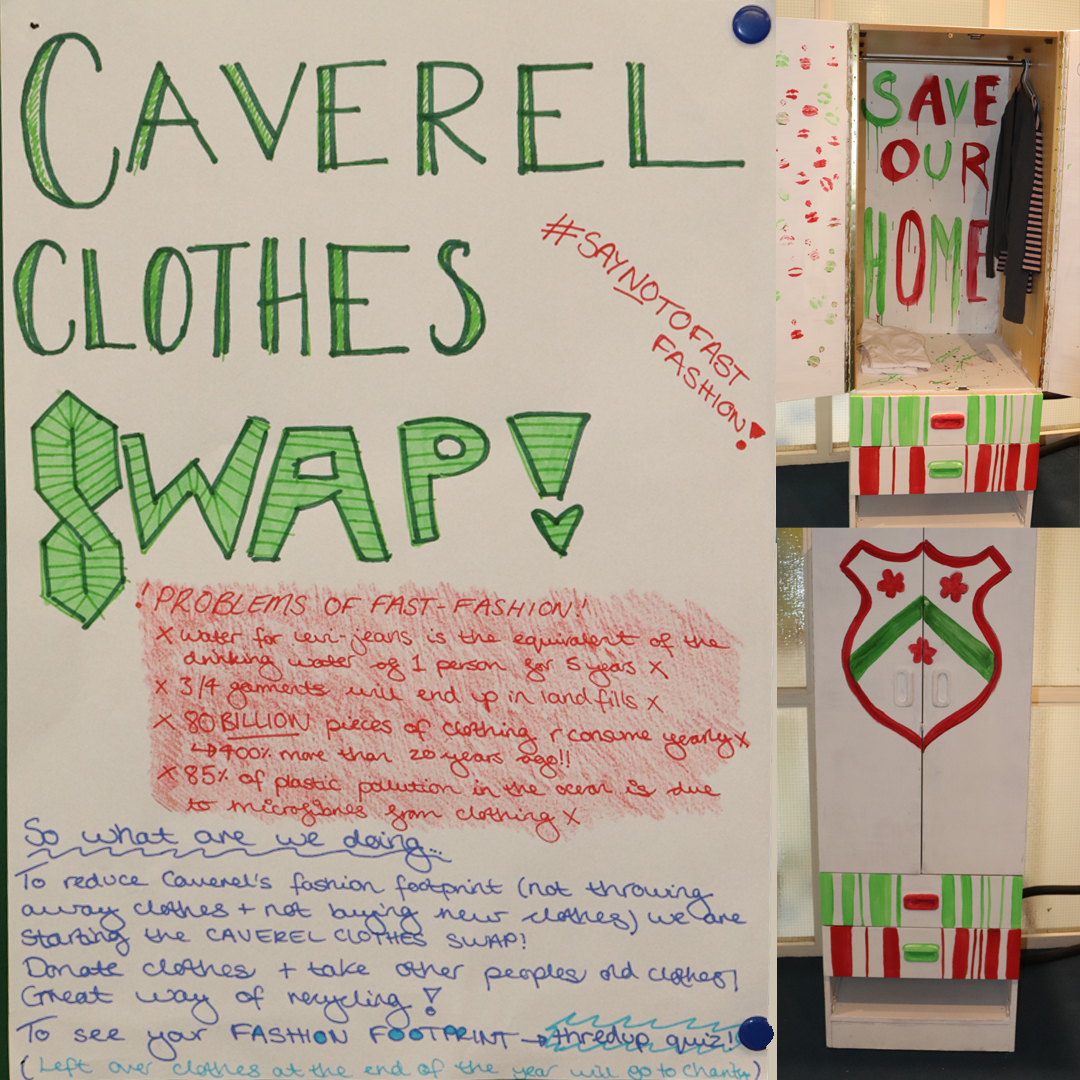 CAVEREL
CLOTHES
SWAP!
#SAYNOTOFAST
FASHION!
! PROBLEMS OF FAST-FASHION!
x water for levi-jeans is the equivalent of the
drinking water of 1 person for 5 years x
x 3/4 garments will end up in landfills x
x 80 BILLION pieces of clothing r consume yearly x
↳ 400% more than 20 years ago!!
x 85% of plastic pollution in the ocean is due
to microfibres from clothing x
So what are we doing...
To reduce Caverel's fashion footprint (not throwing
away clothes + not buying new clothes) we are
starting the CAVEREL CLOTHES SWAP!
Donate clothes + take other peoples old clothes,
Great way of recycling!
To see your FASHION FOOTPRINT → thredup quiz!
(Left over clothes at the end of the year will go to charity)
SAVE
OUR
HOME